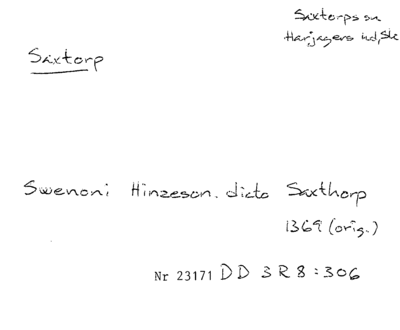 Saxtorps sn
Harjagers hd, Sk
Saxtorp
Swenoni Hinzeson. dicto Saxthorp
1369 (orig.)
Nr 23171 DD 3R8:306